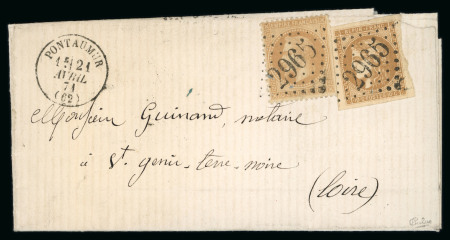 PONTAUMUR
1E 21
AVRIL
71
(62)
2965
2955
Monsieur Guinand, notaire
à St. genis-terre-noire
(Loire)